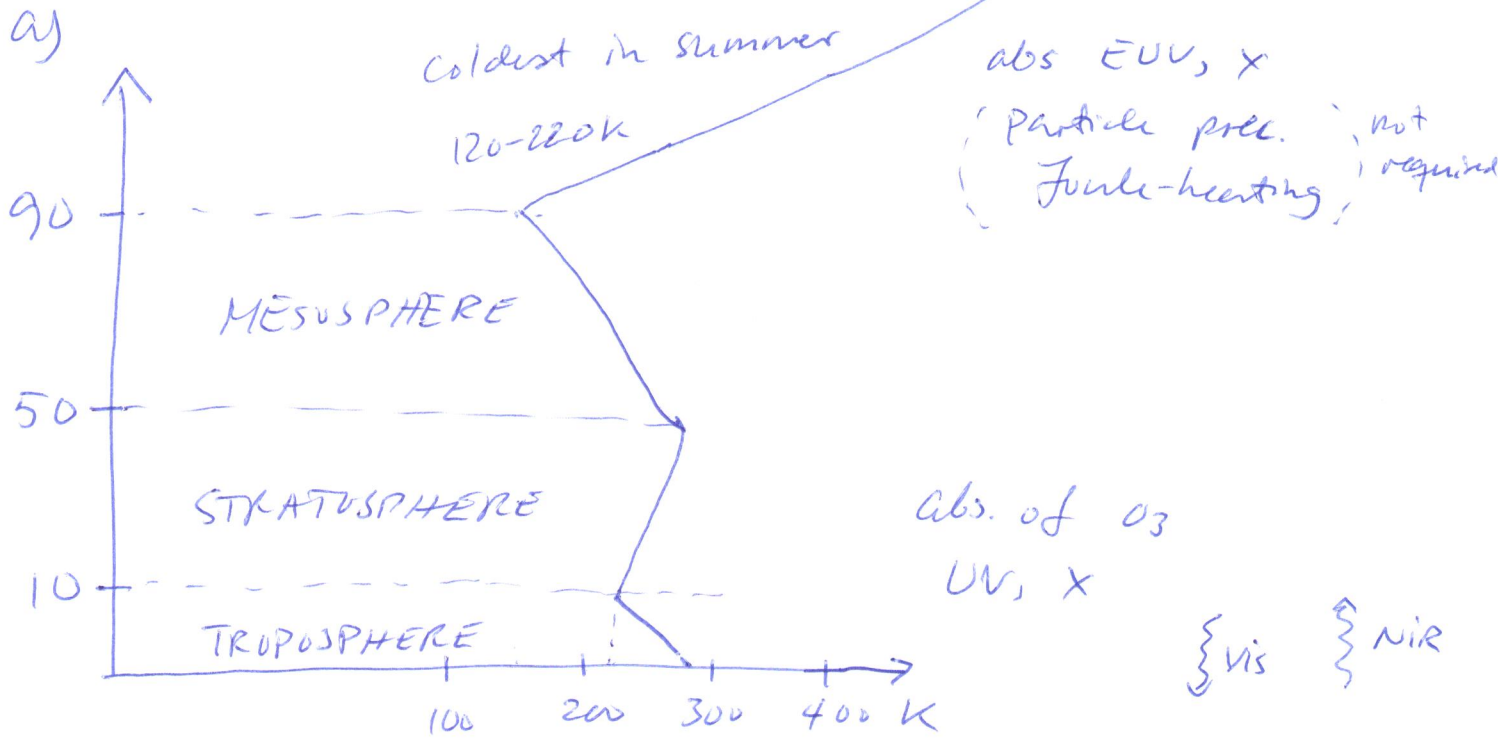 a)
coldest in summer
120-220K
abs EUV, X
(Particle prec.
Joule-heating)
not
required
90
MESOSPHERE
50
STRATOSPHERE
abs. of O3
UV, X
10
TROPOSPHERE
Vis
NIR
100 200 300 400 K